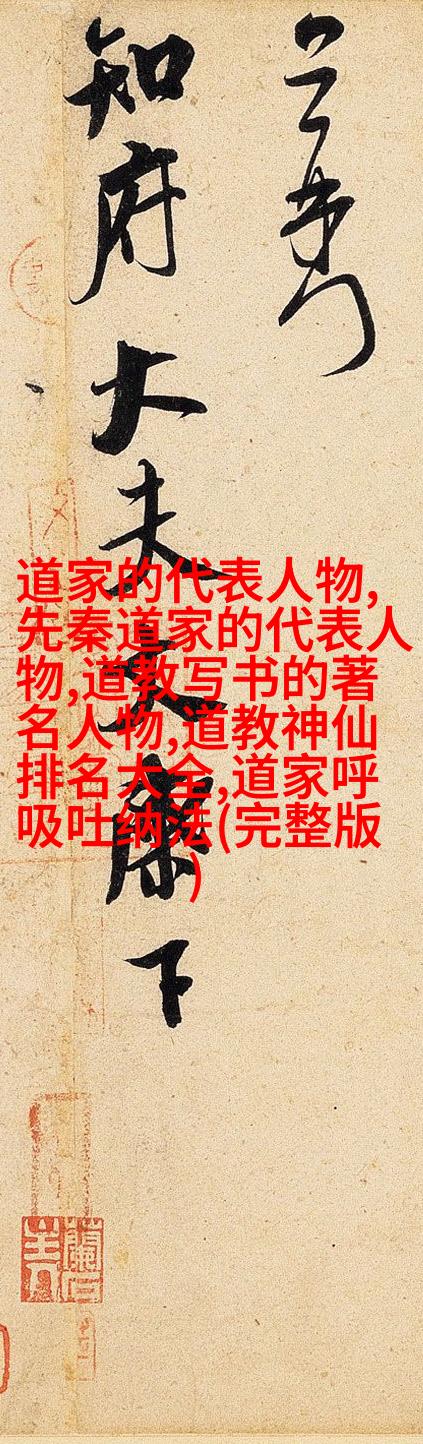 知府大夫
下
道家的代表人物,
先秦道家的代表人
物,道教写书的著
名人物,道教神仙
排名大全,道家呼
吸吐纳法(完整版
)